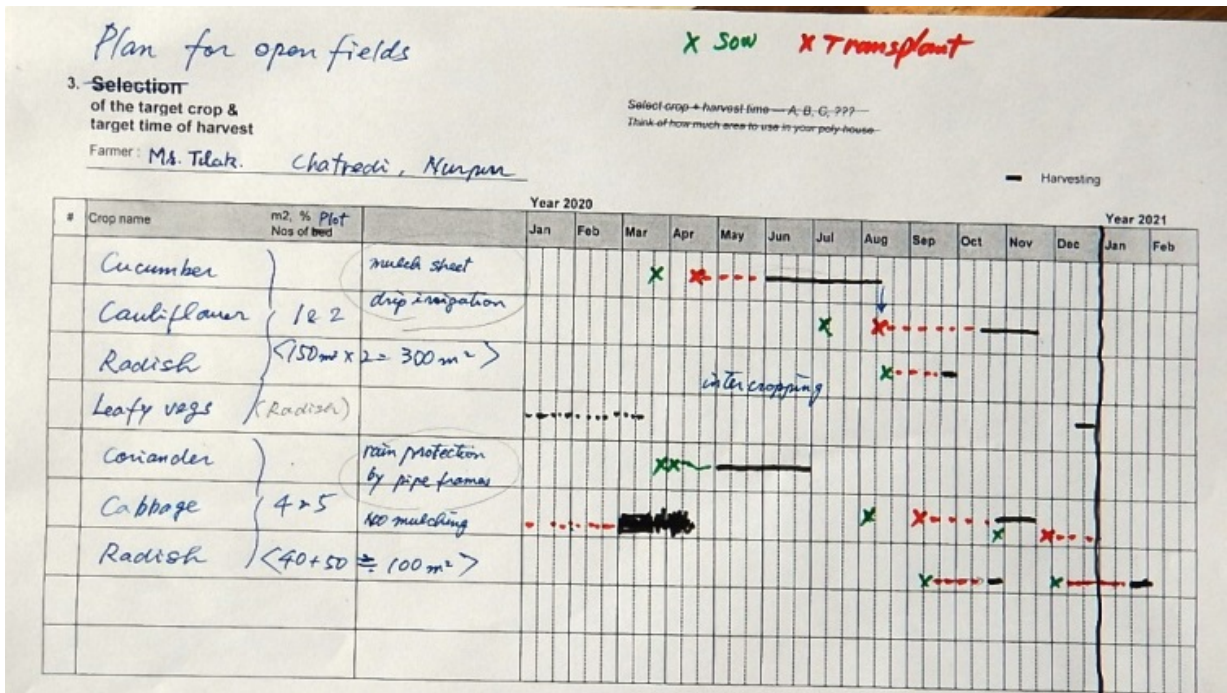 Plan for open fields
x Sow x Transplant
3. Selection
of the target crop &
target time of harvest
Select crop + harvest time — A, B, C, ???
Think of how much area to use in your poly house
Farmer: Chatredi, Nurpur
Harvesting
Year 2020
Year 2021
# Crop name m2, % Plot Nos of bed Jan Feb Mar Apr May Jun Jul Aug Sep Oct Nov Dec Jan Feb
Cucumber mulch sheet
Cauliflower 1 & 2 drip irrigation
Radish <150m² x 2 = 300m²>
intercropping
Leafy vegs (Radish)
Coriander rain protection
by pipe frames
Cabbage 4 & 5 No mulching
Radish <40+50 ≒ 100m²>